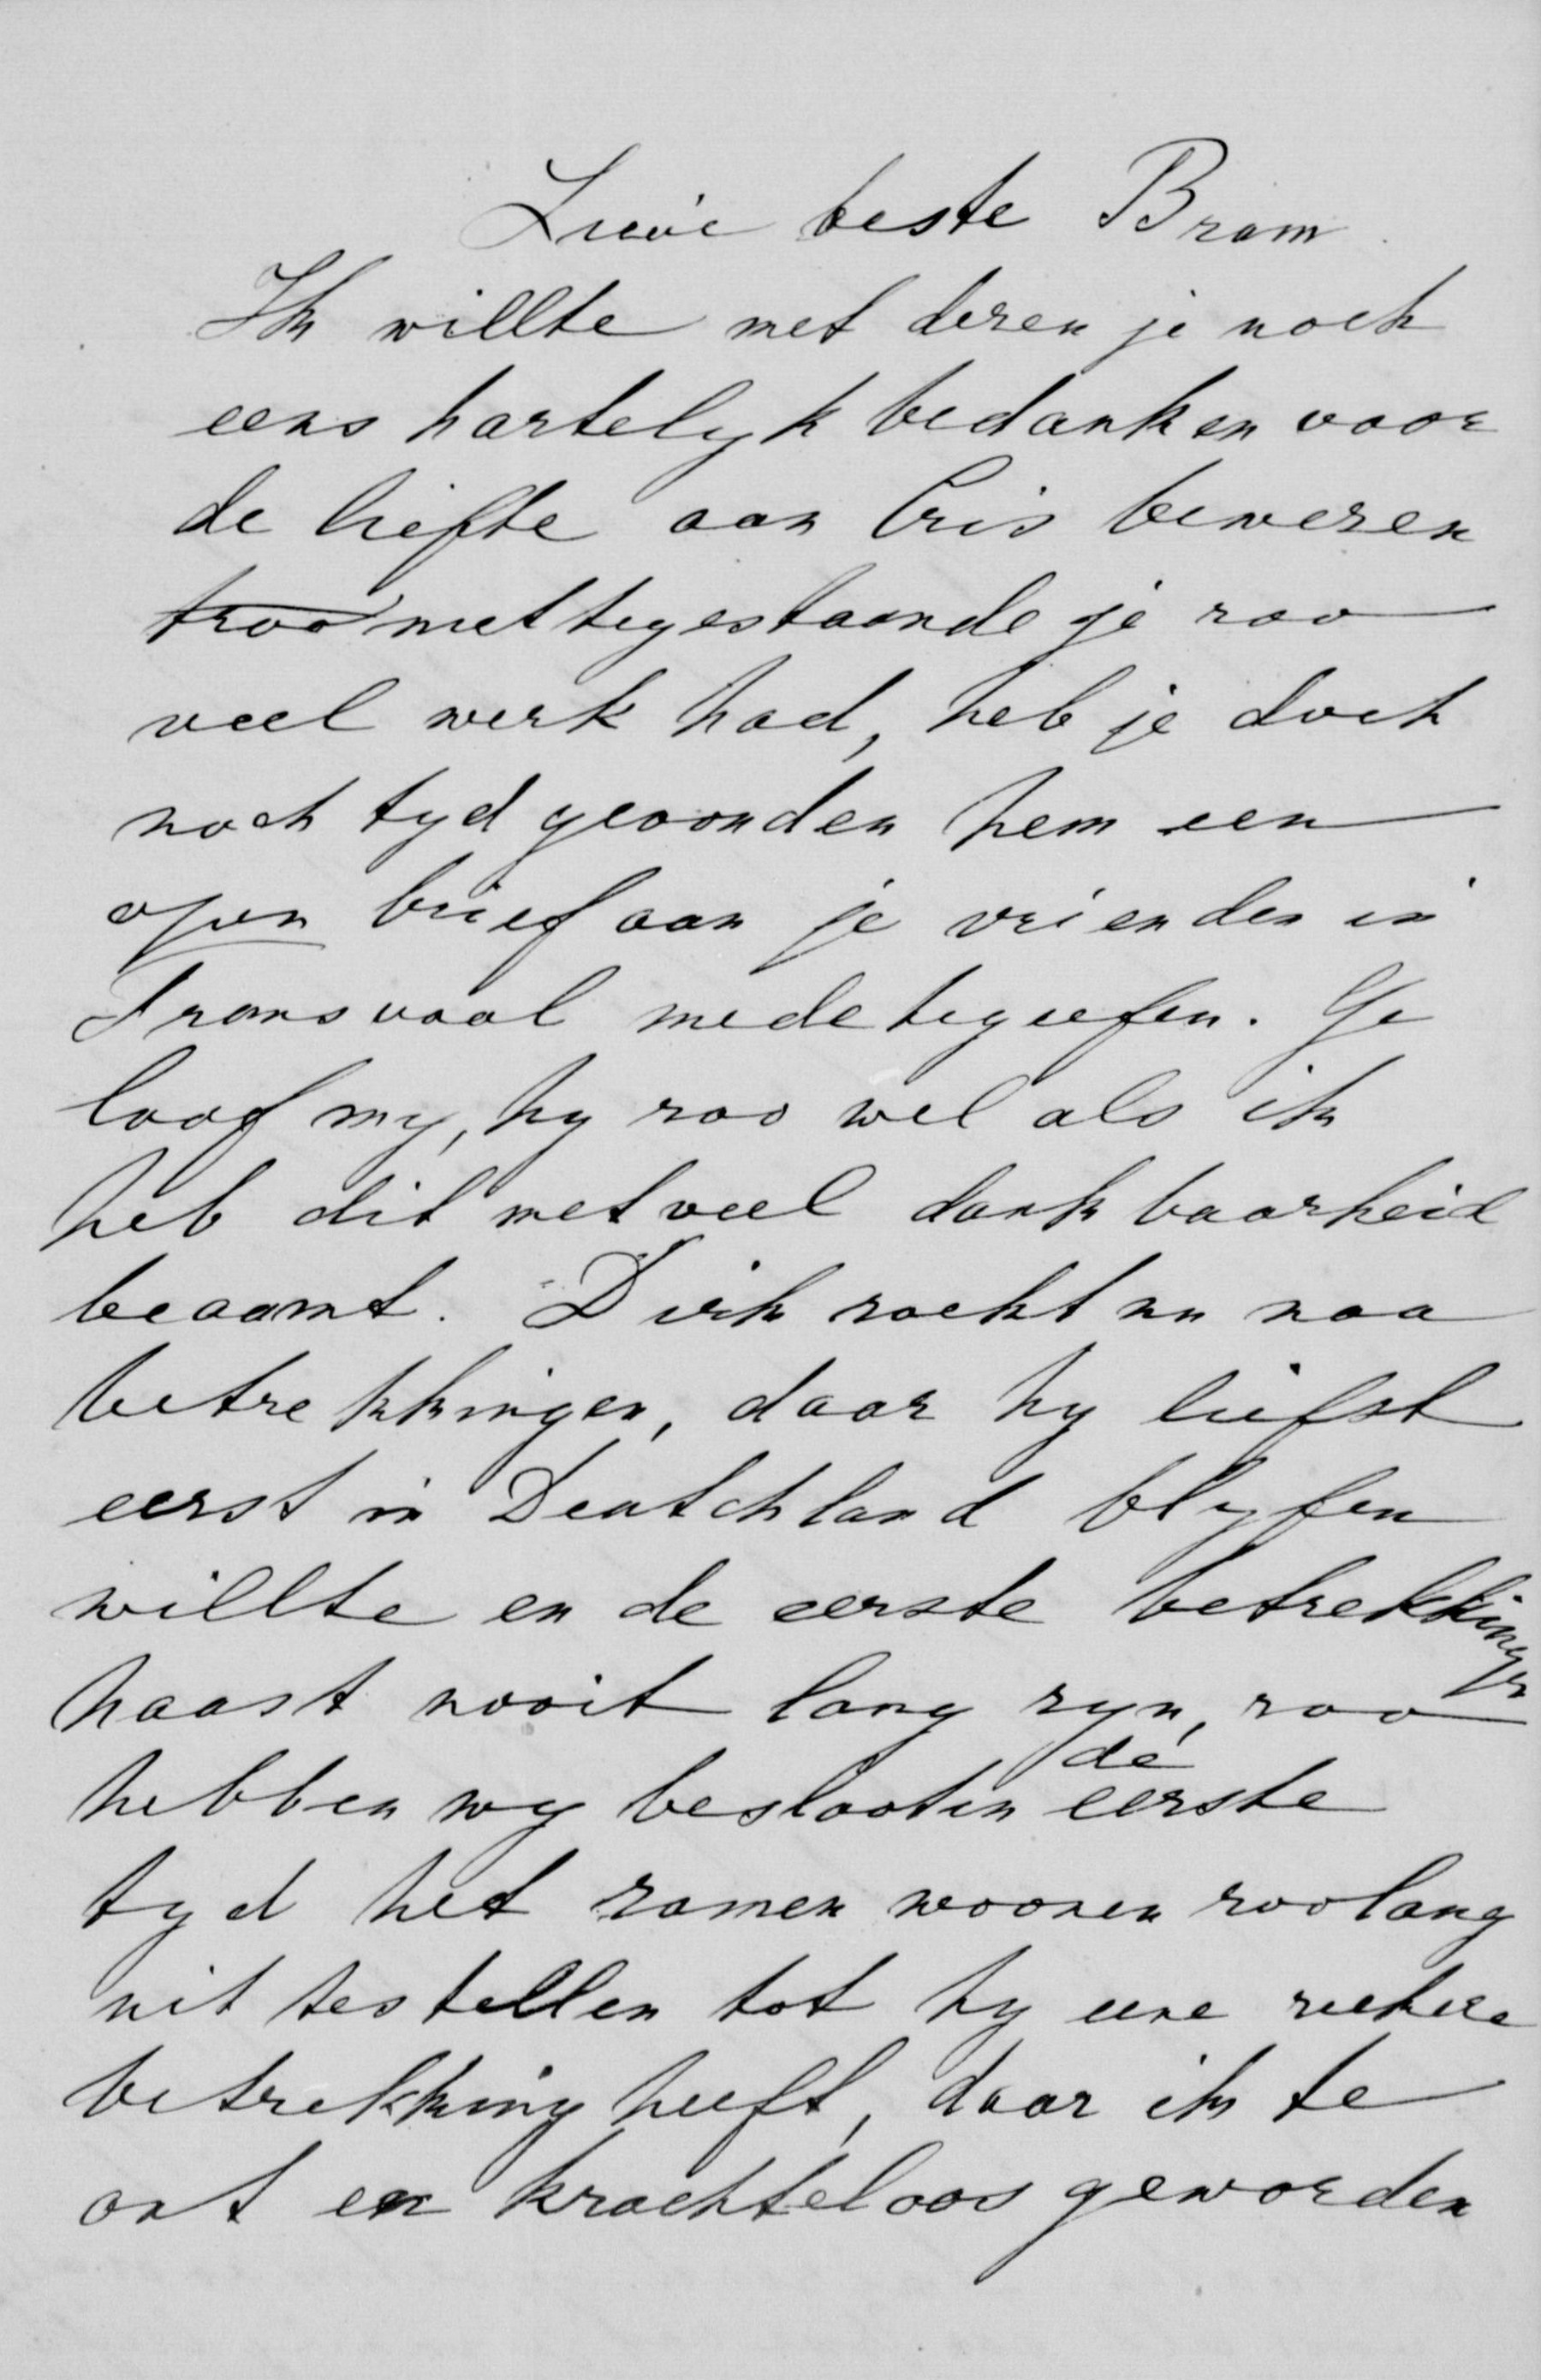 Lieve beste Bram
Ik willte met deren je noch
eens hartelyk bedanken voor
de liefte aan Cris beweren
troo nettegestaande je roo
veel werk had, heb je doch
noch tyd gevonden hem een
open brief aan je vrienden in
Transvaal medetegeefen. Ge
loof my, hy roo wel als ik
heb dit met veel dankbaarheid
beaamt. Dirk roekt nu naa
betrekkingen, daar hy liefst
eerst in Deutchland blyfen
willte en de eerste betrekkingen
haast nooit lang ryn, roo
hebben wy beslooten de eerste
tyd het ramen woonen roolang
uit testellen tot hy eene reekere
betrekking heeft, daar ik te
out en krachteloos geworden